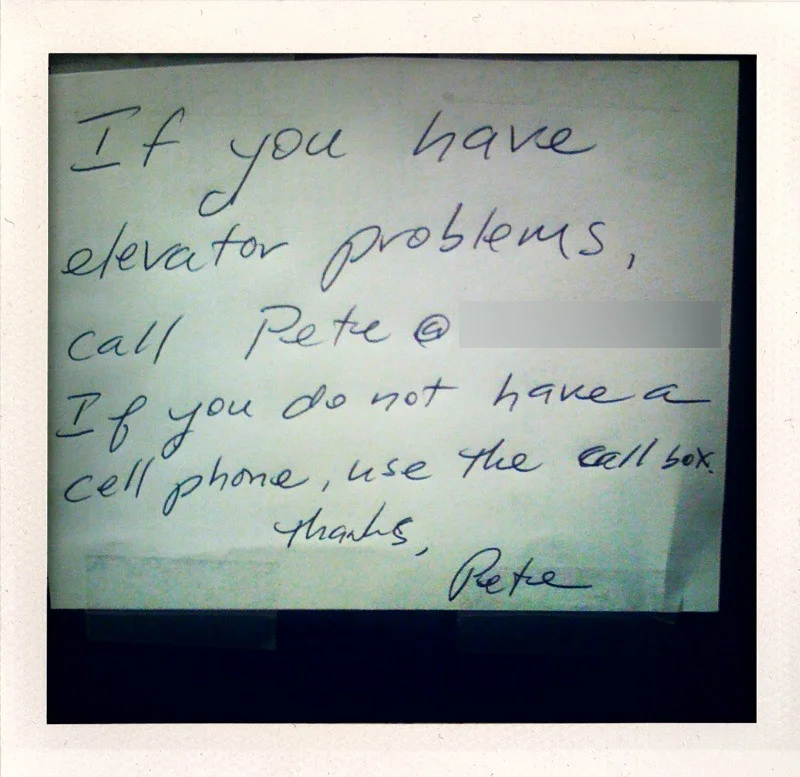 If you have
elevator problems,
call Pete @
If you do not have a
cell phone, use the call box.
Thanks,
Pete